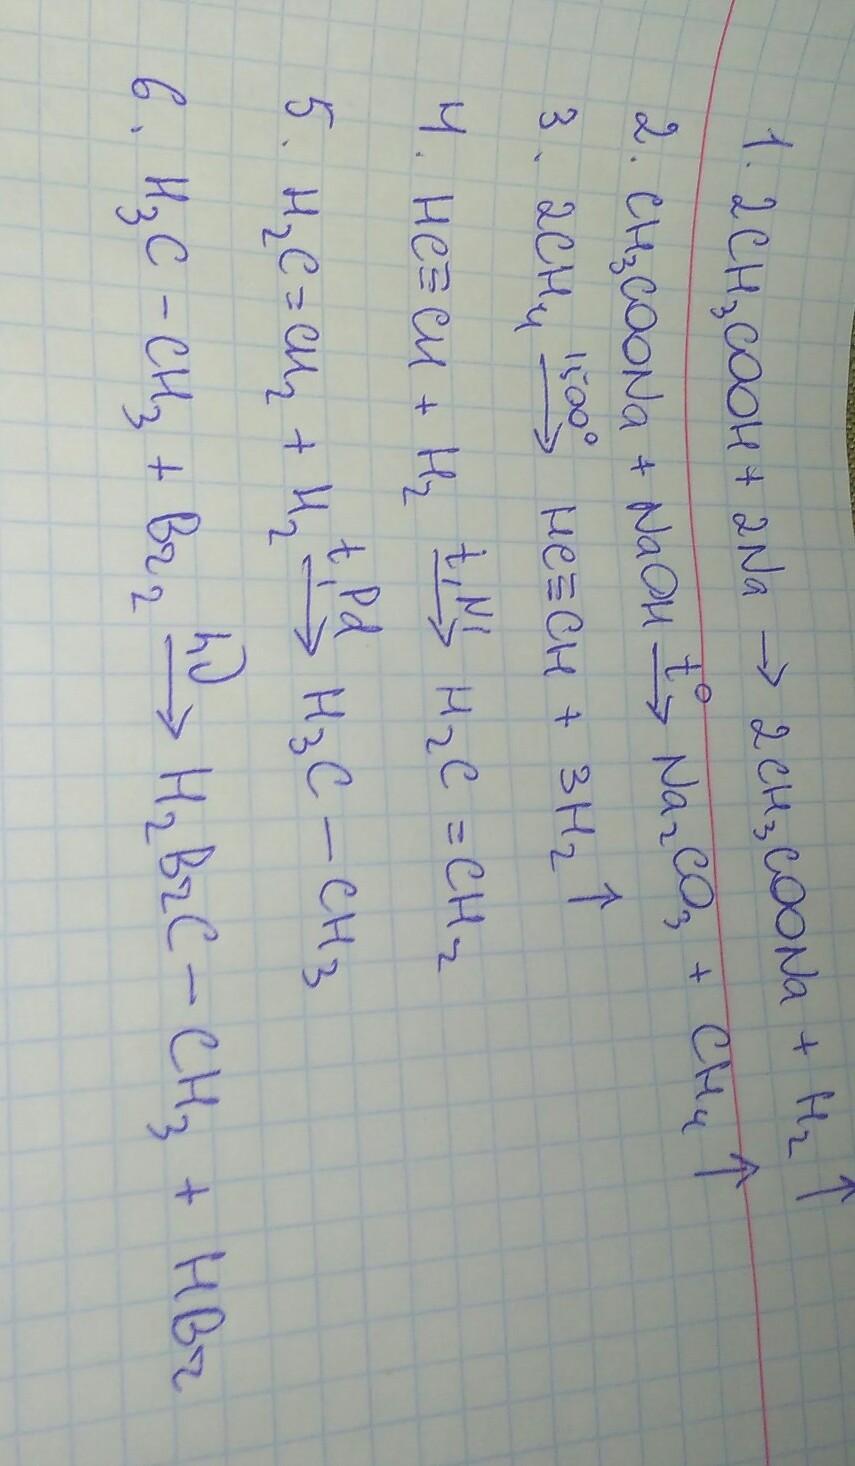 1. 2CH₃COOH + 2Na → 2CH₃COONa + H₂ ↑
2. CH₃COONa + NaOH —t°→ Na₂CO₃ + CH₄ ↑
3. 2CH₄ —1500°→ HC≡CH + 3H₂ ↑
4. HC≡CH + H₂ —t, Ni→ H₂C=CH₂
5. H₂C=CH₂ + H₂ —t, Pd→ H₃C–CH₃
6. H₃C–CH₃ + Br₂ —hν→ H₂BrC–CH₃ + HBr